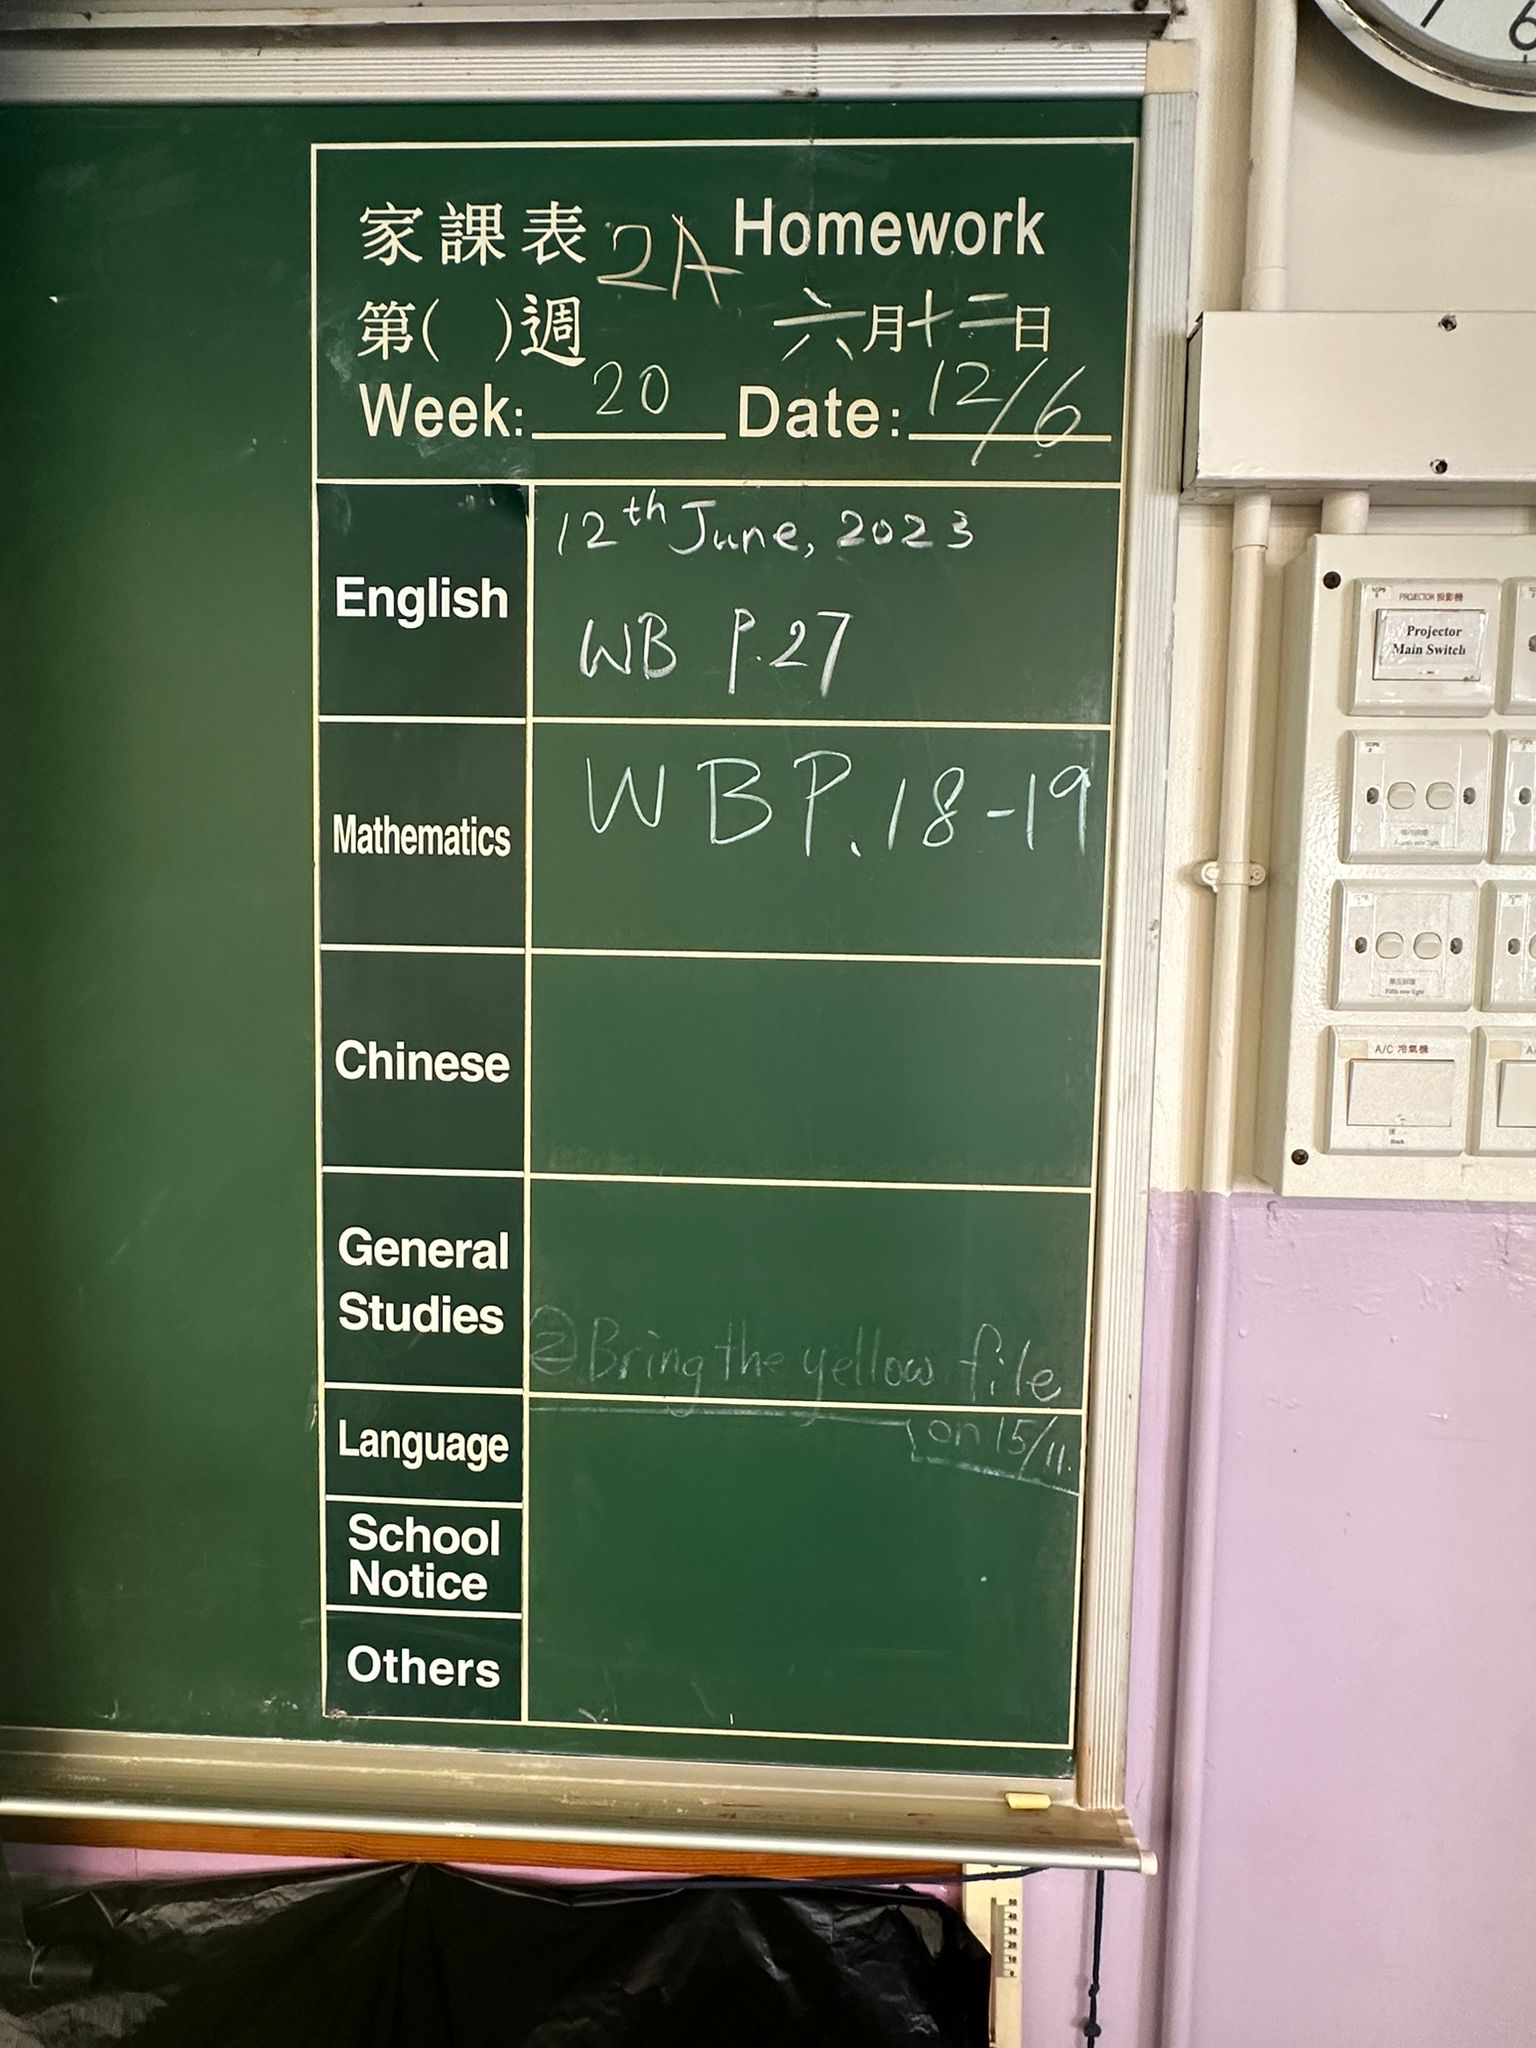 家課表 2A Homework
第( )週 六月十二日
Week: 20 Date: 12/6
English
12th June, 2023
WB P.27
Mathematics
WB P.18-19
Chinese
General
Studies
② Bring the yellow file
on 15/11.
Language
School
Notice
Others
6
PROJECTOR 投影機
Projector
Main Switch
Fifth row light
A/C 冷氣機
Back
50
40
30
20
10
0